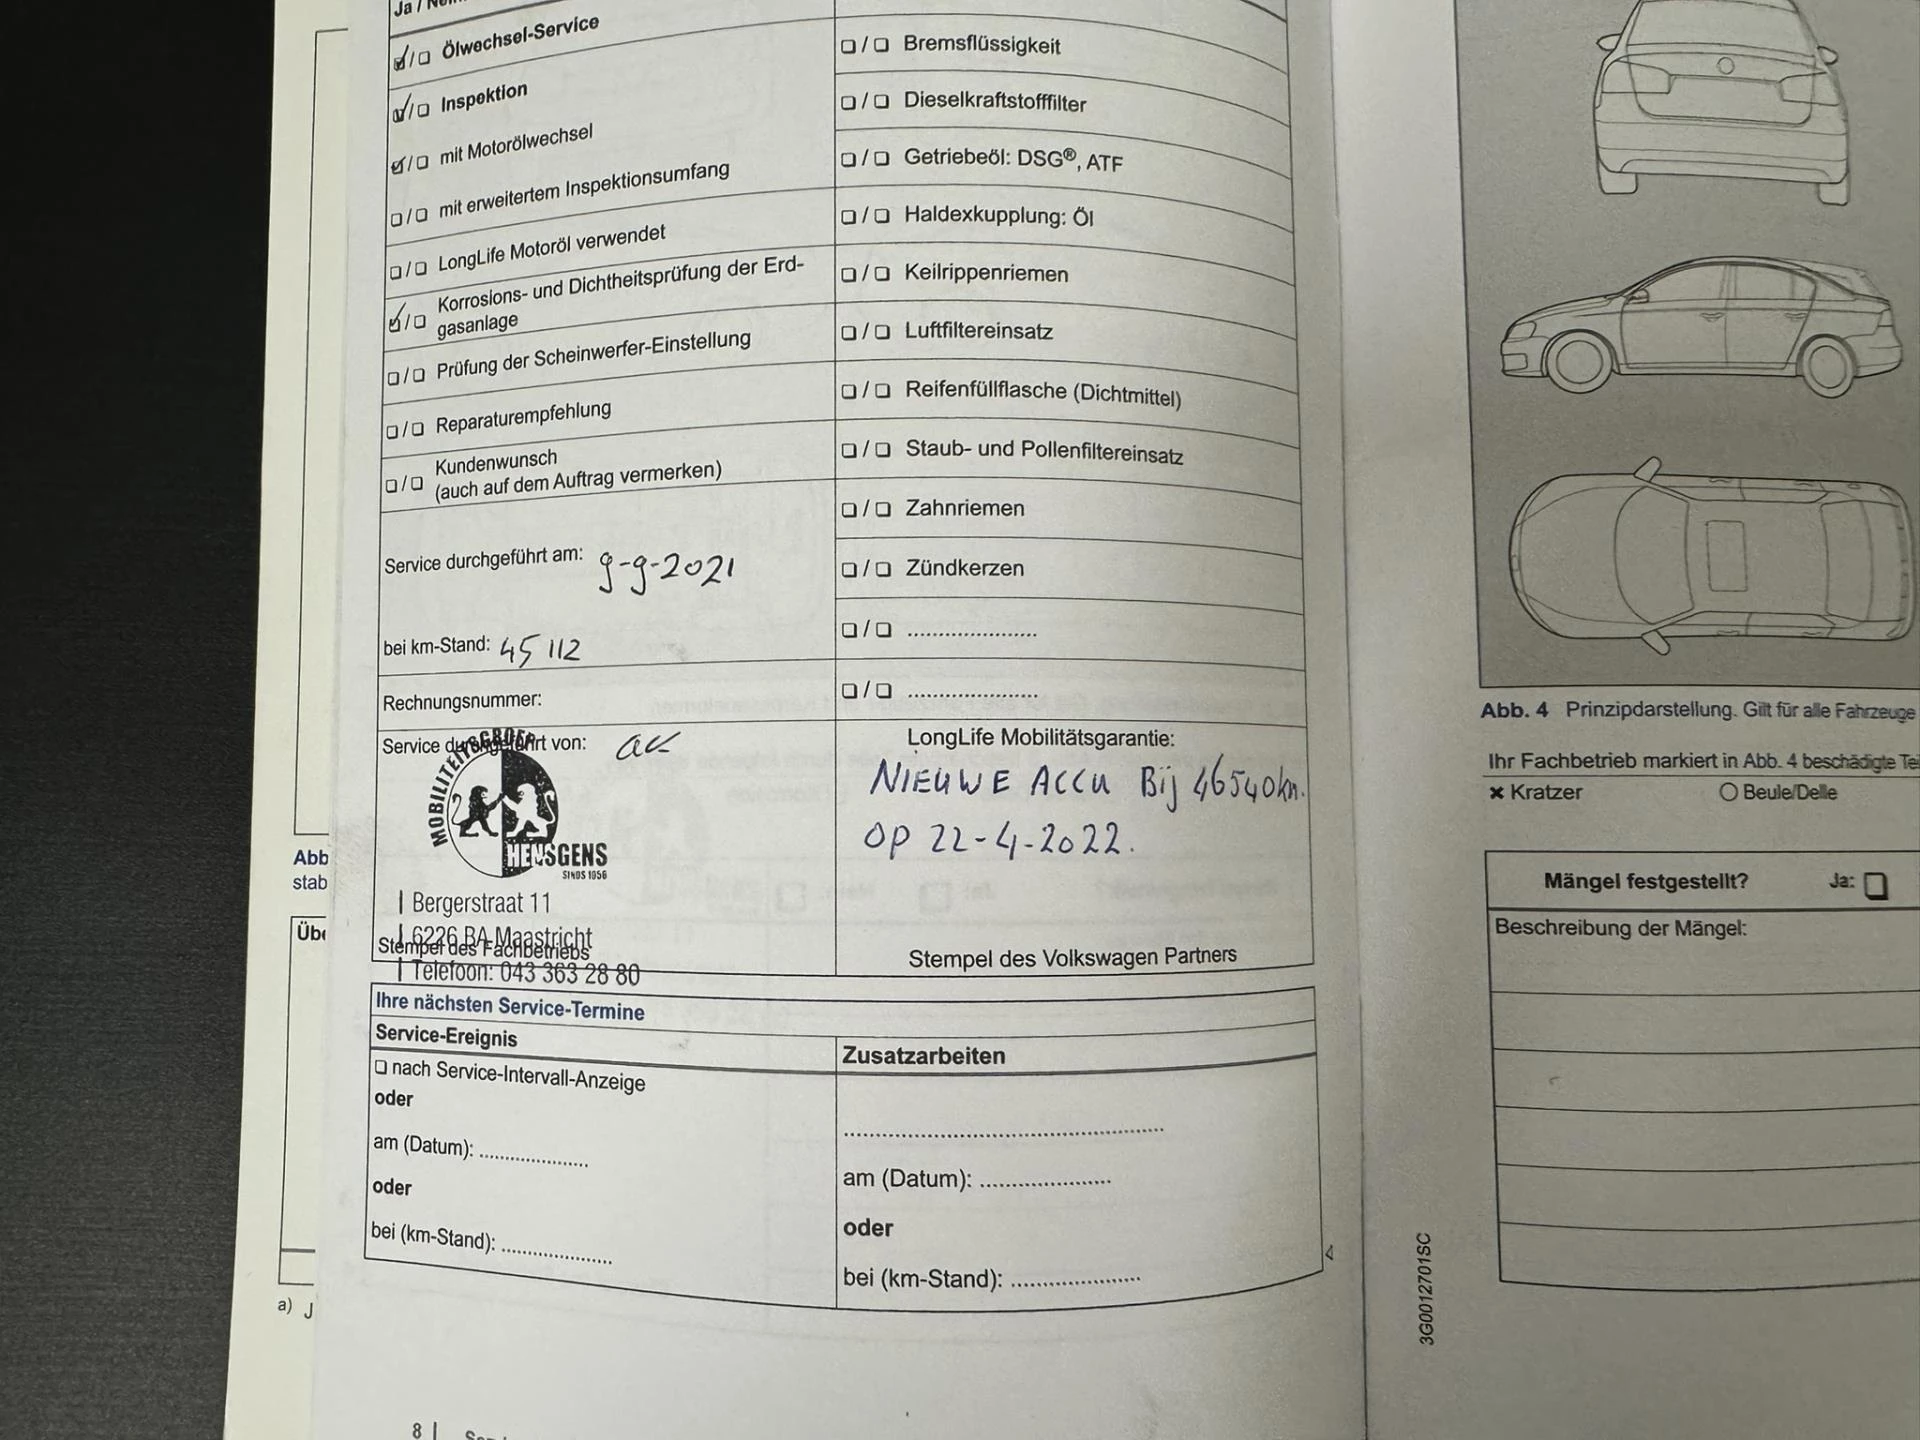 Ja /
☑/☐ Ölwechsel-Service
☑/☐ Inspektion
☑/☐ mit Motorölwechsel
☐/☐ mit erweitertem Inspektionsumfang
☐/☐ LongLife Motoröl verwendet
☑/☐ Korrosions- und Dichtheitsprüfung der Erd-
gasanlage
☐/☐ Prüfung der Scheinwerfer-Einstellung
☐/☐ Reparaturempfehlung
☐/☐ Kundenwunsch
(auch auf dem Auftrag vermerken)
Service durchgeführt am: 9-9-2021
bei km-Stand: 45 112
Rechnungsnummer:
Service durchgeführt von:
MOBILITEITSGROEP
HENSGENS
SINDS 1956
| Bergerstraat 11
| 6226 BA Maastricht
Stempel des Fachbetriebs
| Telefoon: 043 363 28 80
☐/☐ Bremsflüssigkeit
☐/☐ Dieselkraftstofffilter
☐/☐ Getriebeöl: DSG®, ATF
☐/☐ Haldexkupplung: Öl
☐/☐ Keilrippenriemen
☐/☐ Luftfiltereinsatz
☐/☐ Reifenfüllflasche (Dichtmittel)
☐/☐ Staub- und Pollenfiltereinsatz
☐/☐ Zahnriemen
☐/☐ Zündkerzen
☐/☐ ......................
☐/☐ ......................
LongLife Mobilitätsgarantie:
NIEUWE ACCU Bij 46540km.
OP 22-4-2022.
Stempel des Volkswagen Partners
Ihre nächsten Service-Termine
Service-Ereignis
☐ nach Service-Intervall-Anzeige
oder
am (Datum): ...................
oder
bei (km-Stand): ...................
Zusatzarbeiten
......................................................
am (Datum): ......................
oder
bei (km-Stand): ......................
8 |
Abb
stab
Übe
a) J
3G0012701SC
Abb. 4 Prinzipdarstellung. Gilt für alle Fahrzeuge
Ihr Fachbetrieb markiert in Abb. 4 beschädigte Tei
× Kratzer
○ Beule/Delle
Mängel festgestellt? Ja: ☐
Beschreibung der Mängel: